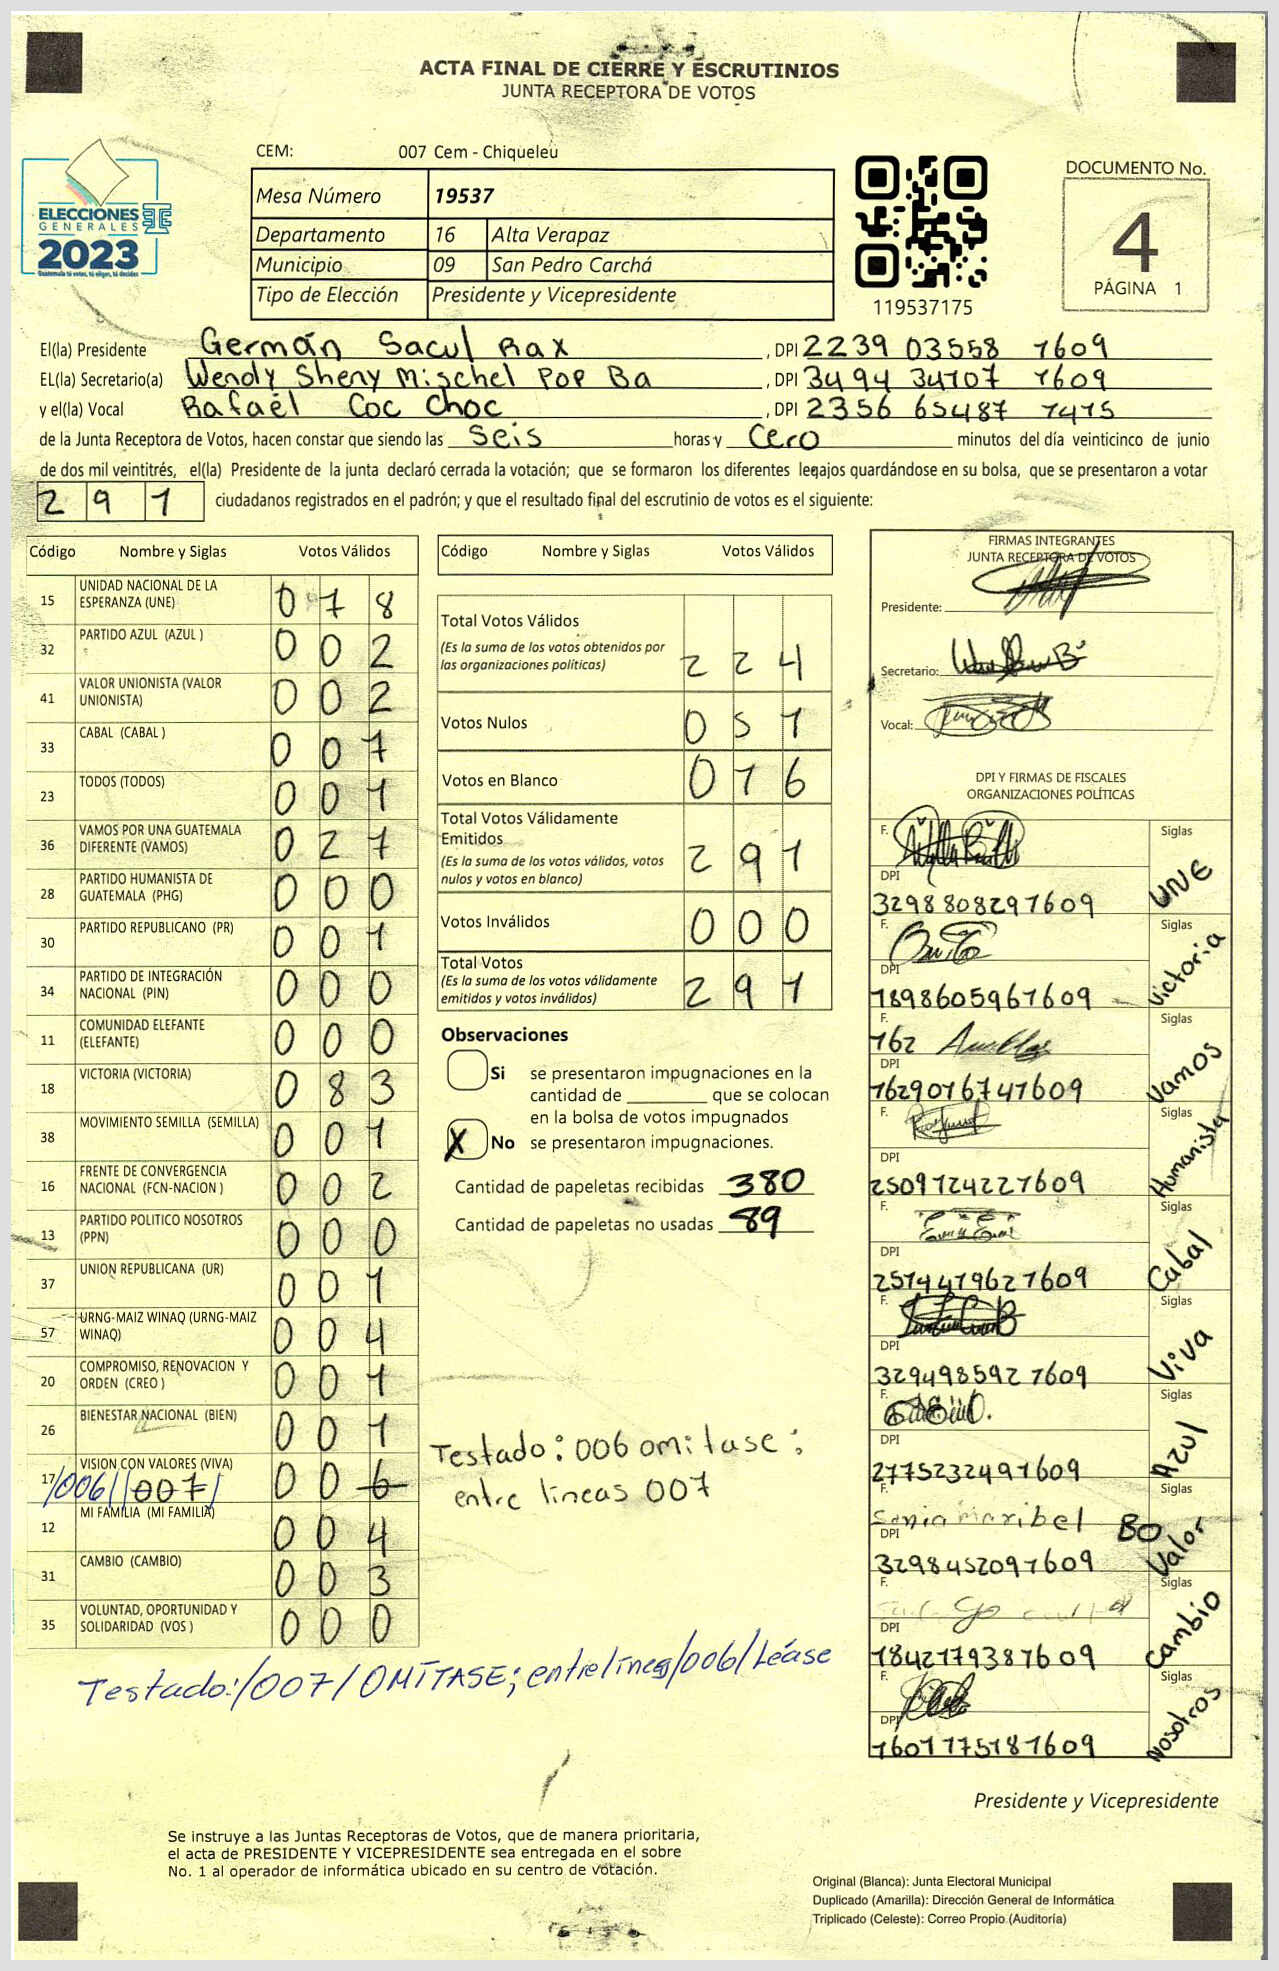 ACTA FINAL DE CIERRE Y ESCRUTINIOS
JUNTA RECEPTORA DE VOTOS
CEM: 007 Cem - Chiqueleu
ELECCIONES
GENERALES
2023
Guatemala tú votas, tú eliges, tú decides
Mesa Número 19537
Departamento 16 Alta Verapaz
Municipio 09 San Pedro Carchá
Tipo de Elección Presidente y Vicepresidente
119537175
DOCUMENTO No.
4
PÁGINA 1
El(la) Presidente Germán Sacul Rax , DPI 2239 03558 1609
EL(la) Secretario(a) Wendy Sheny Mischel Pop Ba , DPI 3494 34107 1609
y el(la) Vocal Rafael Coc Choc , DPI 2356 65487 1415
de la Junta Receptora de Votos, hacen constar que siendo las Seis horas y Cero minutos del día veinticinco de junio
de dos mil veintitrés, el(la) Presidente de la junta declaró cerrada la votación; que se formaron los diferentes legajos guardándose en su bolsa, que se presentaron a votar
291 ciudadanos registrados en el padrón; y que el resultado final del escrutinio de votos es el siguiente:
Código Nombre y Siglas Votos Válidos
15 UNIDAD NACIONAL DE LA ESPERANZA (UNE) 078
32 PARTIDO AZUL (AZUL ) 002
41 VALOR UNIONISTA (VALOR UNIONISTA) 002
33 CABAL (CABAL ) 007
23 TODOS (TODOS) 001
36 VAMOS POR UNA GUATEMALA DIFERENTE (VAMOS) 027
28 PARTIDO HUMANISTA DE GUATEMALA (PHG) 000
30 PARTIDO REPUBLICANO (PR) 001
34 PARTIDO DE INTEGRACIÓN NACIONAL (PIN) 000
11 COMUNIDAD ELEFANTE (ELEFANTE) 000
18 VICTORIA (VICTORIA) 083
38 MOVIMIENTO SEMILLA (SEMILLA) 001
16 FRENTE DE CONVERGENCIA NACIONAL (FCN-NACION ) 002
13 PARTIDO POLITICO NOSOTROS (PPN) 000
37 UNION REPUBLICANA (UR) 001
57 URNG-MAIZ WINAQ (URNG-MAIZ WINAQ) 004
20 COMPROMISO, RENOVACION Y ORDEN (CREO ) 001
26 BIENESTAR NACIONAL (BIEN) 001
17 VISION CON VALORES (VIVA) 006
/006//007/
12 MI FAMILIA (MI FAMILIA) 004
31 CAMBIO (CAMBIO) 003
35 VOLUNTAD, OPORTUNIDAD Y SOLIDARIDAD (VOS ) 000
Testado:/007/OMÍTASE; entrelíneas/006/Léase
Código Nombre y Siglas Votos Válidos
Total Votos Válidos
(Es la suma de los votos obtenidos por
las organizaciones políticas) 224
Votos Nulos 051
Votos en Blanco 016
Total Votos Válidamente
Emitidos
(Es la suma de los votos válidos, votos
nulos y votos en blanco) 291
Votos Inválidos 000
Total Votos
(Es la suma de los votos válidamente
emitidos y votos inválidos) 291
Observaciones
Si se presentaron impugnaciones en la
cantidad de ________ que se colocan
en la bolsa de votos impugnados
X No se presentaron impugnaciones.
Cantidad de papeletas recibidas 380
Cantidad de papeletas no usadas 89
Testado: 006 omitase:
entre lineas 007
FIRMAS INTEGRANTES
JUNTA RECEPTORA DE VOTOS
Presidente:
Secretario:
Vocal:
DPI Y FIRMAS DE FISCALES
ORGANIZACIONES POLÍTICAS
F. Siglas
DPI UNE
3298808291609
F. Siglas
DPI Victoria
1898605961609
F. Siglas
162
DPI Vamos
1629016741609
F. Siglas
DPI Humanista
2509124221609
F. Siglas
DPI Cabal
2514419621609
F. Siglas
DPI Viva
3294985921609
F. Siglas
DPI Azul
2775232491609
F. Siglas
Sonia Maribel BO
DPI Valor
3298452091609
F. Siglas
DPI Cambio
1842179381609
F. Siglas
DPI Nosotros
1601175181609
Presidente y Vicepresidente
Se instruye a las Juntas Receptoras de Votos, que de manera prioritaria,
el acta de PRESIDENTE Y VICEPRESIDENTE sea entregada en el sobre
No. 1 al operador de informática ubicado en su centro de votación.
Original (Blanca): Junta Electoral Municipal
Duplicado (Amarilla): Dirección General de Informática
Triplicado (Celeste): Correo Propio (Auditoría)